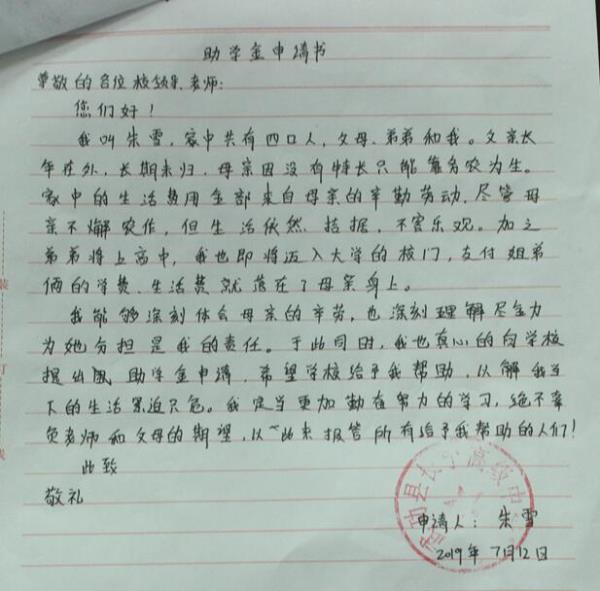 助学金申请书
尊敬的各位校领导、老师：
您们好！
我叫朱雪，家中共有四口人，父母、弟弟和我。父亲长
年在外，长期未归，母亲因没有特长只能靠务农为生。
家中的生活费用全部来自母亲的辛勤劳动，尽管母
亲不懈农作，但生活依然拮据，不容乐观。加之
弟弟将上高中，我也即将迈入大学的校门，支付姐弟
俩的学费、生活费就落在了母亲身上。
我能够深刻体会母亲的辛劳，也深刻理解尽全力
为她分担是我的责任。于此同时，我也真心的向学校
提出 助学金申请，希望学校给予我帮助，以解我当
下的生活累迫只危。我定当更加勤奋努力的学习，绝不辜
负老师和父母的期望，以此来报答所有给予我帮助的人们！
此致
敬礼
申请人：朱雪
2019年7月12日
县长宁高级中